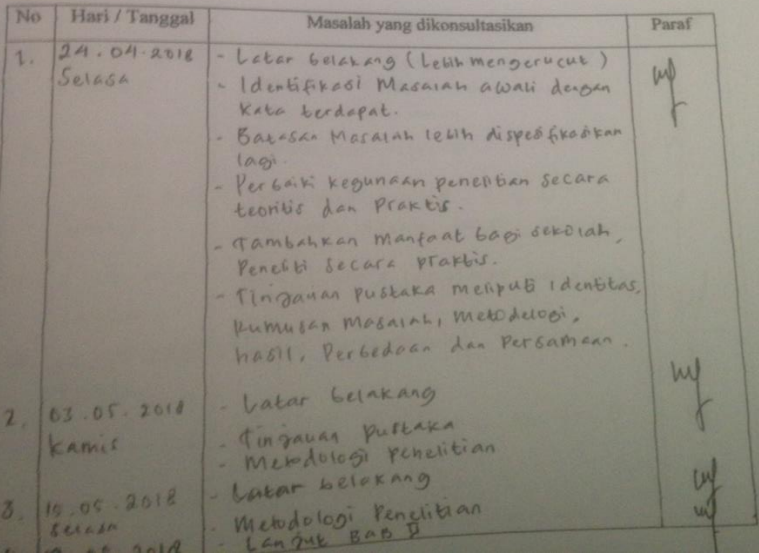 No Hari / Tanggal Masalah yang dikonsultasikan Paraf
1. 24.04.2018 - Latar belakang (Lebih mengerucut)
Selasa - Identifikasi Masalah awali dengan
kata terdapat.
- Batasan Masalah lebih dispesifikasikan
lagi.
- Perbaiki kegunaan penelitian secara
teoritis dan Praktis.
- Tambahkan manfaat bagi sekolah,
Peneliti secara praktis.
- Tinjauan Pustaka meliputi Identitas,
Rumusan Masalah, metodelogi,
hasil, Perbedaan dan Persamaan.
2. 03.05.2018 - Latar belakang
Kamis - Tinjauan Pustaka
- Metodologi Penelitian
3. 15.05.2018 - Latar belakang
Selasa - Metodologi Penelitian
2018 - Lanjut BAB II